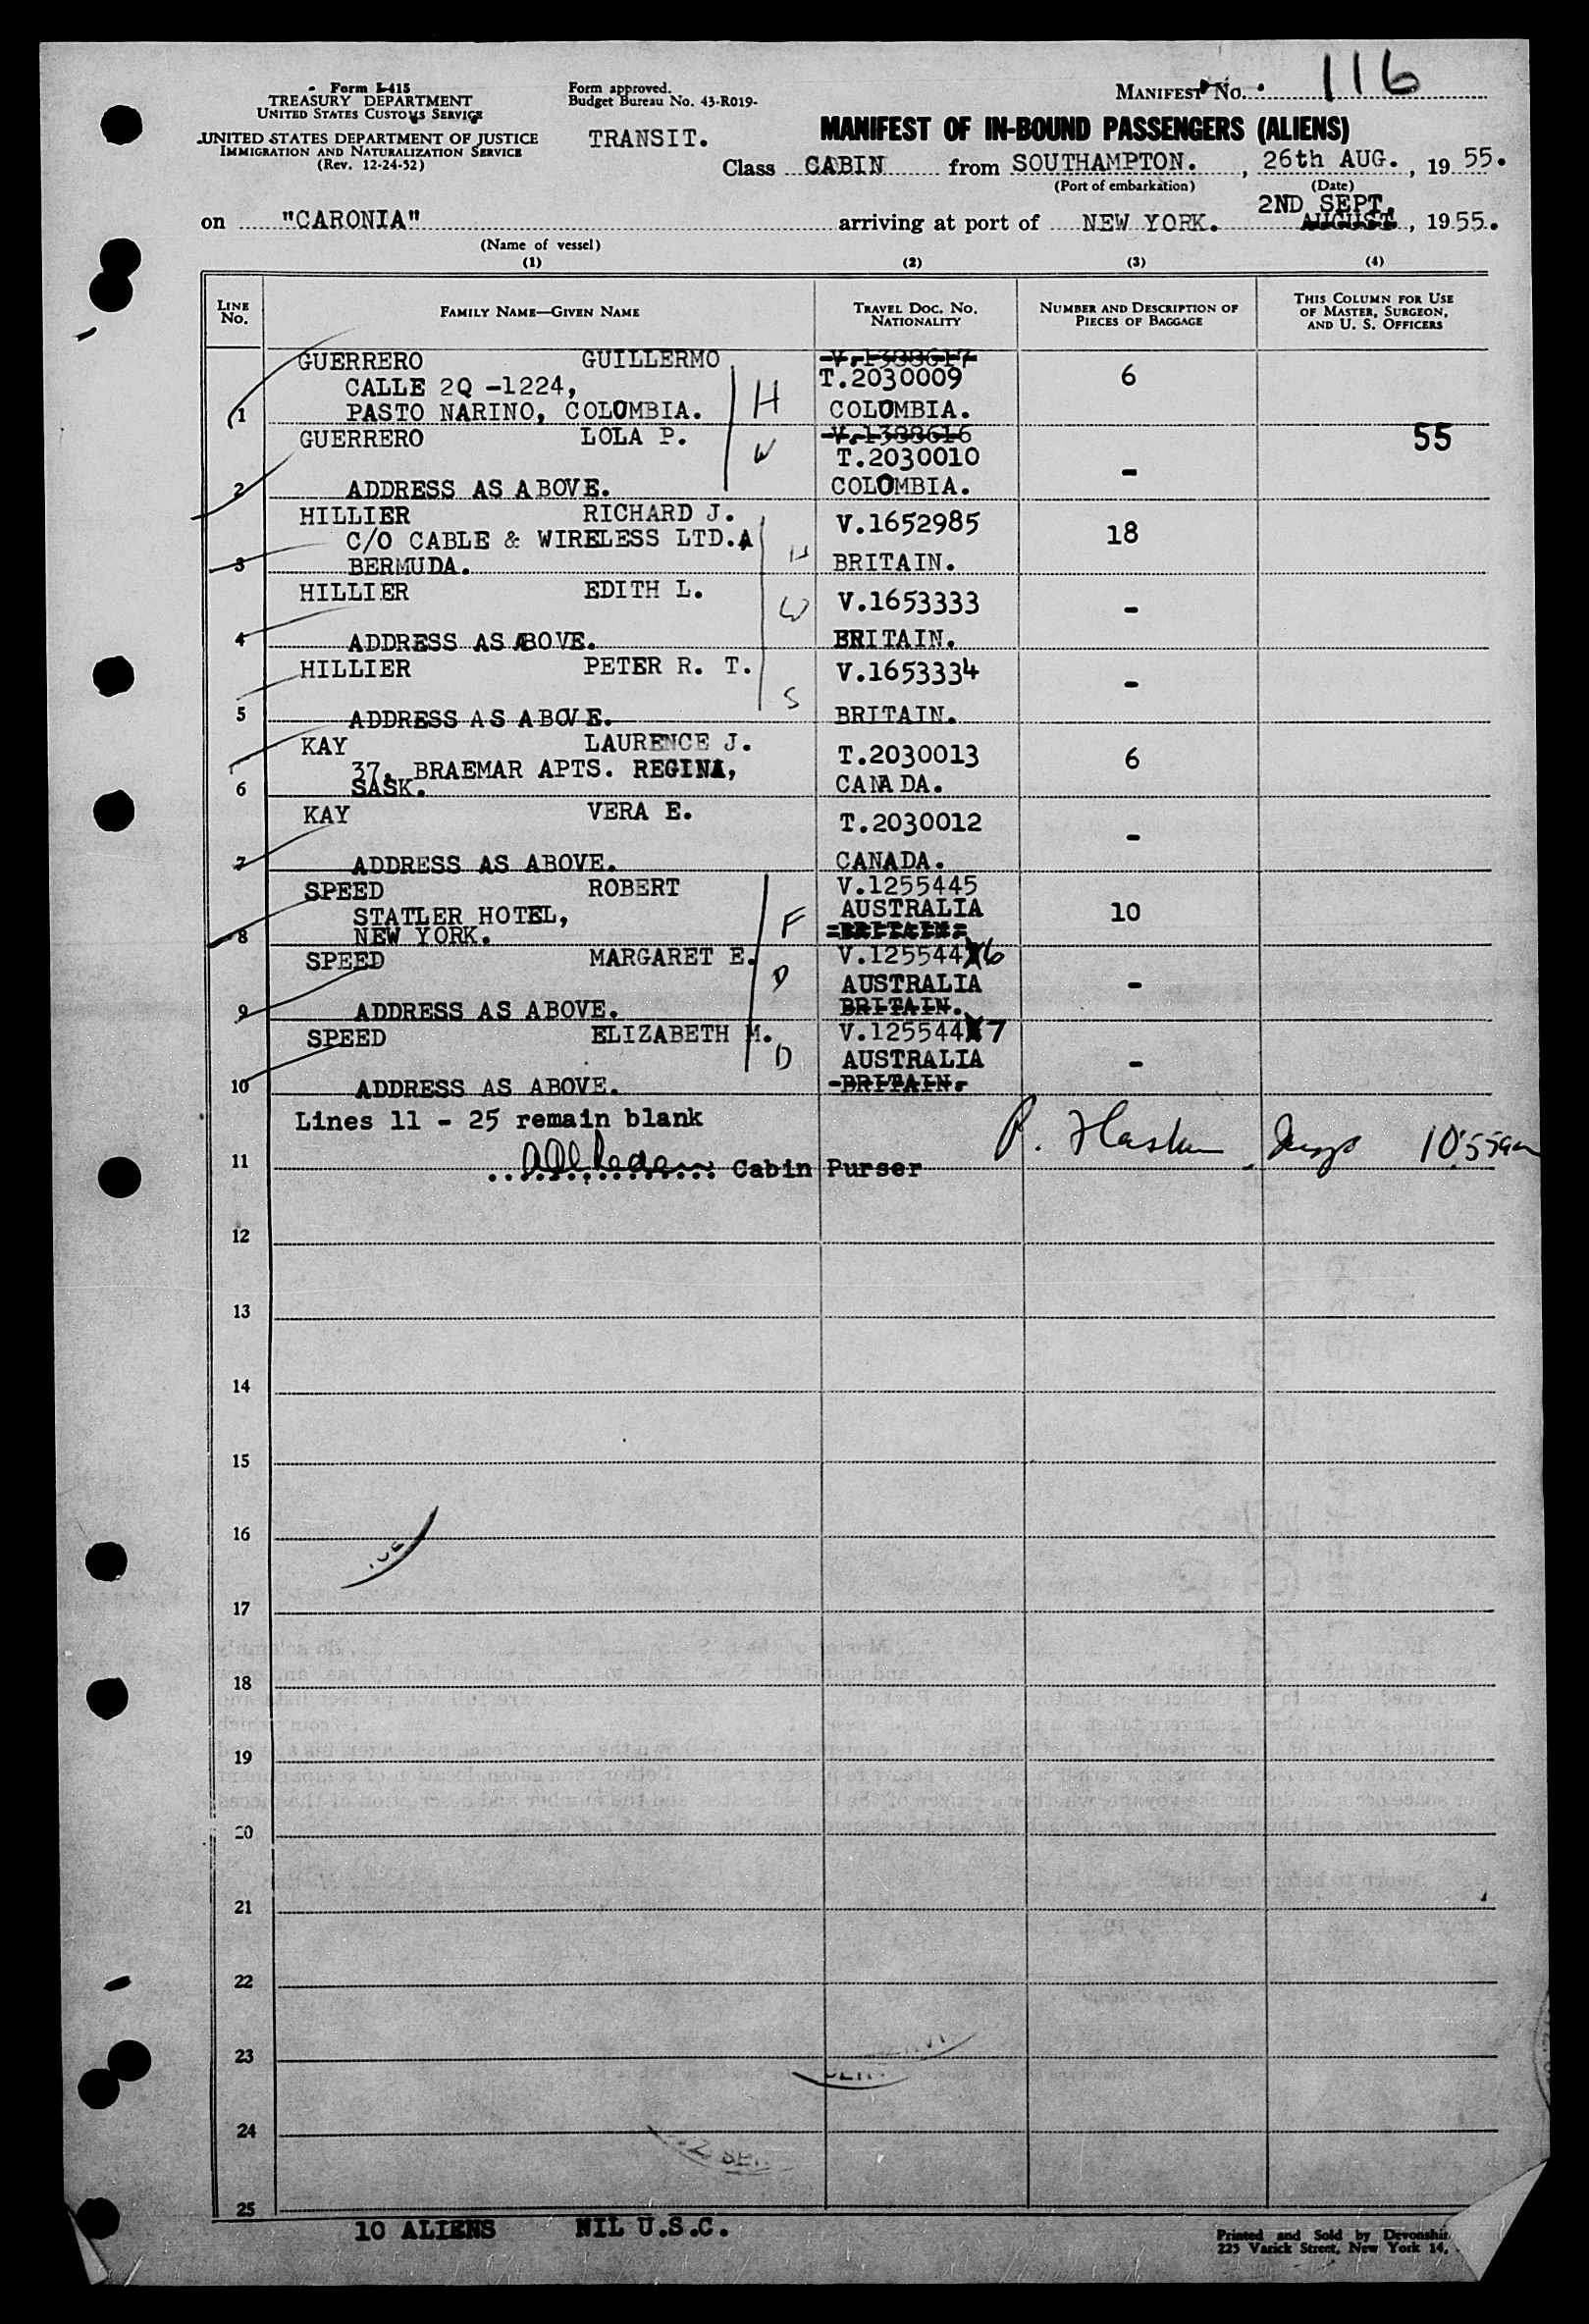 Form I-415
TREASURY DEPARTMENT
UNITED STATES CUSTOMS SERVICE
UNITED STATES DEPARTMENT OF JUSTICE
IMMIGRATION AND NATURALIZATION SERVICE
(Rev. 12-24-52)
Form approved.
Budget Bureau No. 43-R019-
TRANSIT.
MANIFEST NO. 116
MANIFEST OF IN-BOUND PASSENGERS (ALIENS)
Class CABIN from SOUTHAMPTON. , 26th AUG. , 19 55.
(Port of embarkation) (Date)
2ND SEPT.
on "CARONIA" arriving at port of NEW YORK. AUGUST , 19 55.
(Name of vessel)
(1) (2) (3) (4)
LINE NO. FAMILY NAME—GIVEN NAME TRAVEL DOC. NO. NATIONALITY NUMBER AND DESCRIPTION OF PIECES OF BAGGAGE THIS COLUMN FOR USE OF MASTER, SURGEON, AND U. S. OFFICERS
GUERRERO GUILLERMO V.1388617
CALLE 2Q -1224, H T.2030009 6
1 PASTO NARINO, COLOMBIA. COLOMBIA.
GUERRERO LOLA P. V.1388616 55
W T.2030010 -
2 ADDRESS AS ABOVE. COLOMBIA.
HILLIER RICHARD J. V.1652985 18
C/O CABLE & WIRELESS LTD. H
3 BERMUDA. BRITAIN.
HILLIER EDITH L. W V.1653333 -
4 ADDRESS AS ABOVE. BRITAIN.
HILLIER PETER R. T. V.1653334 -
S
5 ADDRESS AS ABOVE. BRITAIN.
KAY LAURENCE J. T.2030013 6
37, BRAEMAR APTS. REGINA,
6 SASK. CANADA.
KAY VERA E. T.2030012 -
7 ADDRESS AS ABOVE. CANADA.
SPEED ROBERT V.1255445
STATLER HOTEL, F AUSTRALIA 10
8 NEW YORK. BRITAIN.
SPEED MARGARET E. V.125544X6
D AUSTRALIA -
9 ADDRESS AS ABOVE. BRITAIN.
SPEED ELIZABETH M. V.125544X7
D AUSTRALIA -
10 ADDRESS AS ABOVE. BRITAIN.
Lines 11 - 25 remain blank
P. 10:55am
11 Cabin Purser
12
13
14
15
16
17
18
19
20
21
22
23
24
25
10 ALIENS NIL U.S.C.
Printed and Sold by Devonshir
225 Varick Street, New York 14,